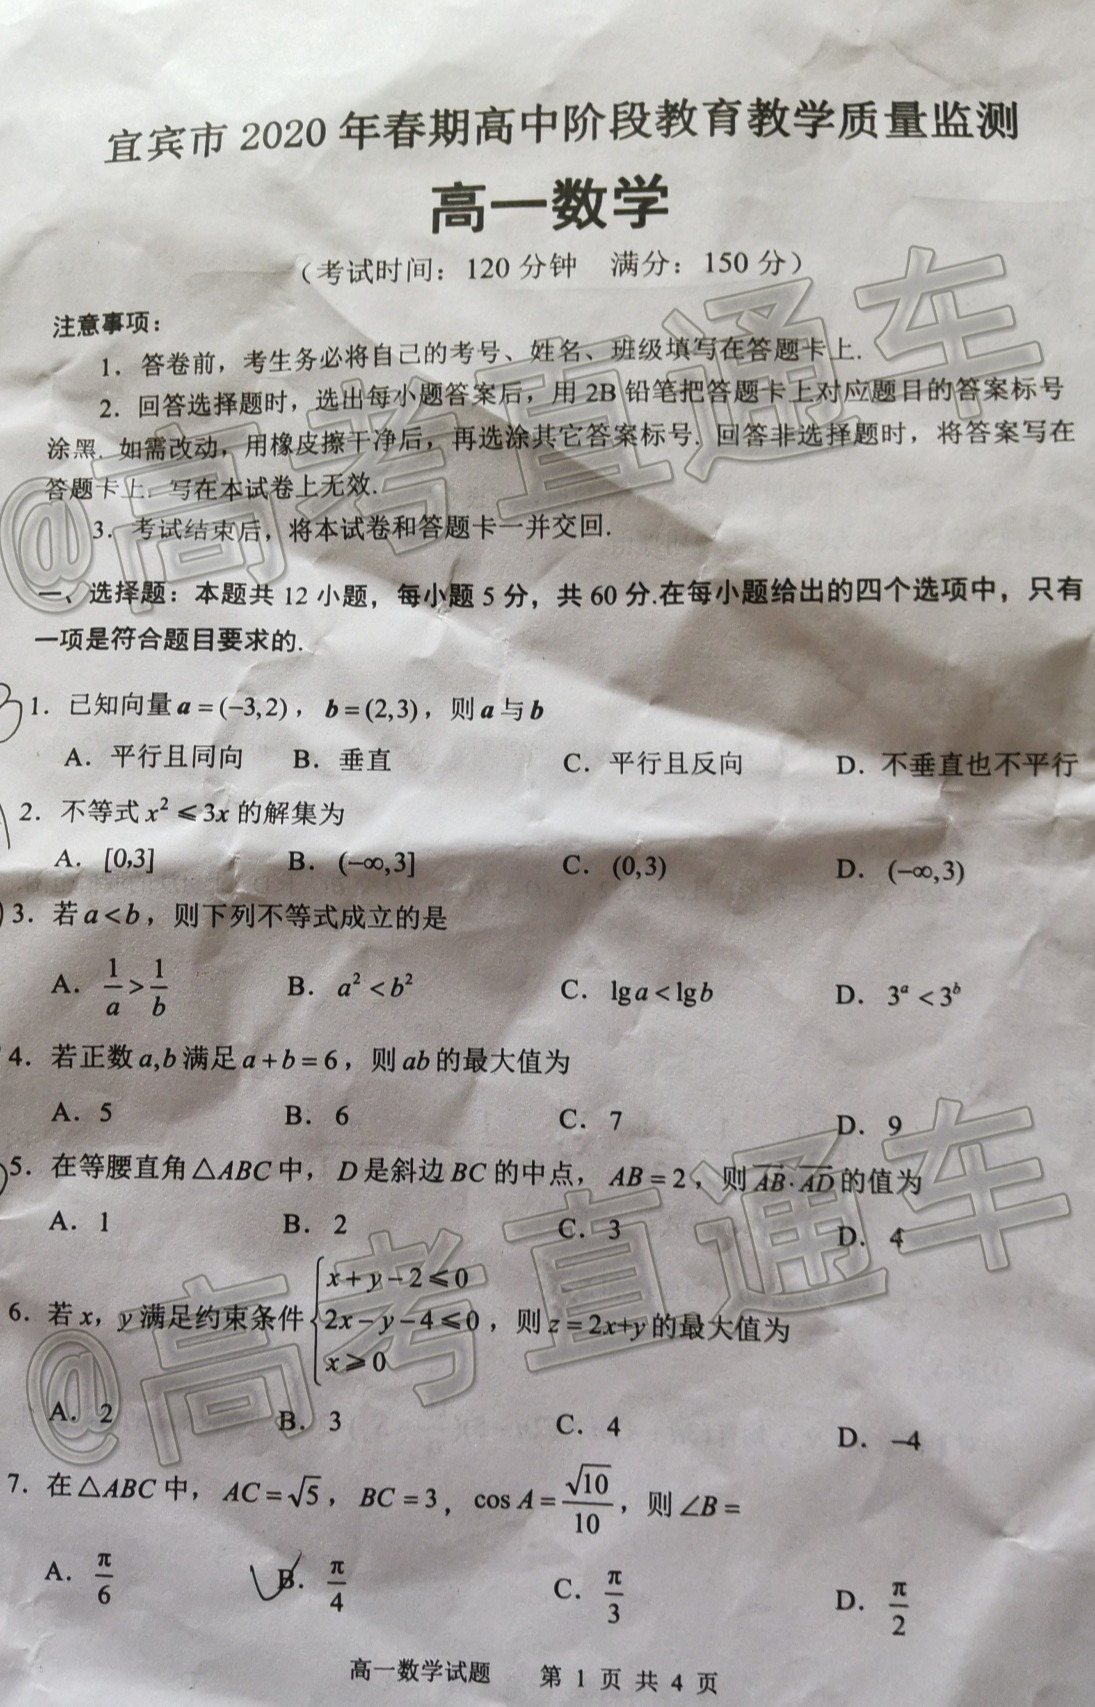 宜宾市 2020 年春期高中阶段教育教学质量监测
高一数学
（考试时间：120 分钟　满分：150 分）
注意事项：
1．答卷前，考生务必将自己的考号、姓名、班级填写在答题卡上.
2．回答选择题时，选出每小题答案后，用 2B 铅笔把答题卡上对应题目的答案标号
涂黑. 如需改动，用橡皮擦干净后，再选涂其它答案标号. 回答非选择题时，将答案写在
答题卡上. 写在本试卷上无效.
3．考试结束后，将本试卷和答题卡一并交回.
一、选择题：本题共 12 小题，每小题 5 分，共 60 分.在每小题给出的四个选项中，只有
一项是符合题目要求的.
1．已知向量 a = (−3,2)，b = (2,3)，则 a 与 b
A．平行且同向　B．垂直　C．平行且反向　D．不垂直也不平行
2．不等式 x² ⩽ 3x 的解集为
A．[0,3]　B．(−∞,3]　C．(0,3)　D．(−∞,3)
3．若 a < b，则下列不等式成立的是
A．1/a > 1/b　B．a² < b²　C．lg a < lg b　D．3ᵃ < 3ᵇ
4．若正数 a,b 满足 a + b = 6，则 ab 的最大值为
A．5　B．6　C．7　D．9
5．在等腰直角 △ABC 中，D 是斜边 BC 的中点，AB = 2，则 AB·AD 的值为
A．1　B．2　C．3　D．4
6．若 x，y 满足约束条件 { x + y − 2 ⩽ 0
2x − y − 4 ⩽ 0，则 z = 2x+y 的最大值为
x ⩾ 0
A．2　B．3　C．4　D．−4
7．在 △ABC 中，AC = √5，BC = 3，cos A = √10/10，则 ∠B =
A．π/6　B．π/4　C．π/3　D．π/2
高一数学试题　第 1 页 共 4 页
@高考直通车
@高考直通车